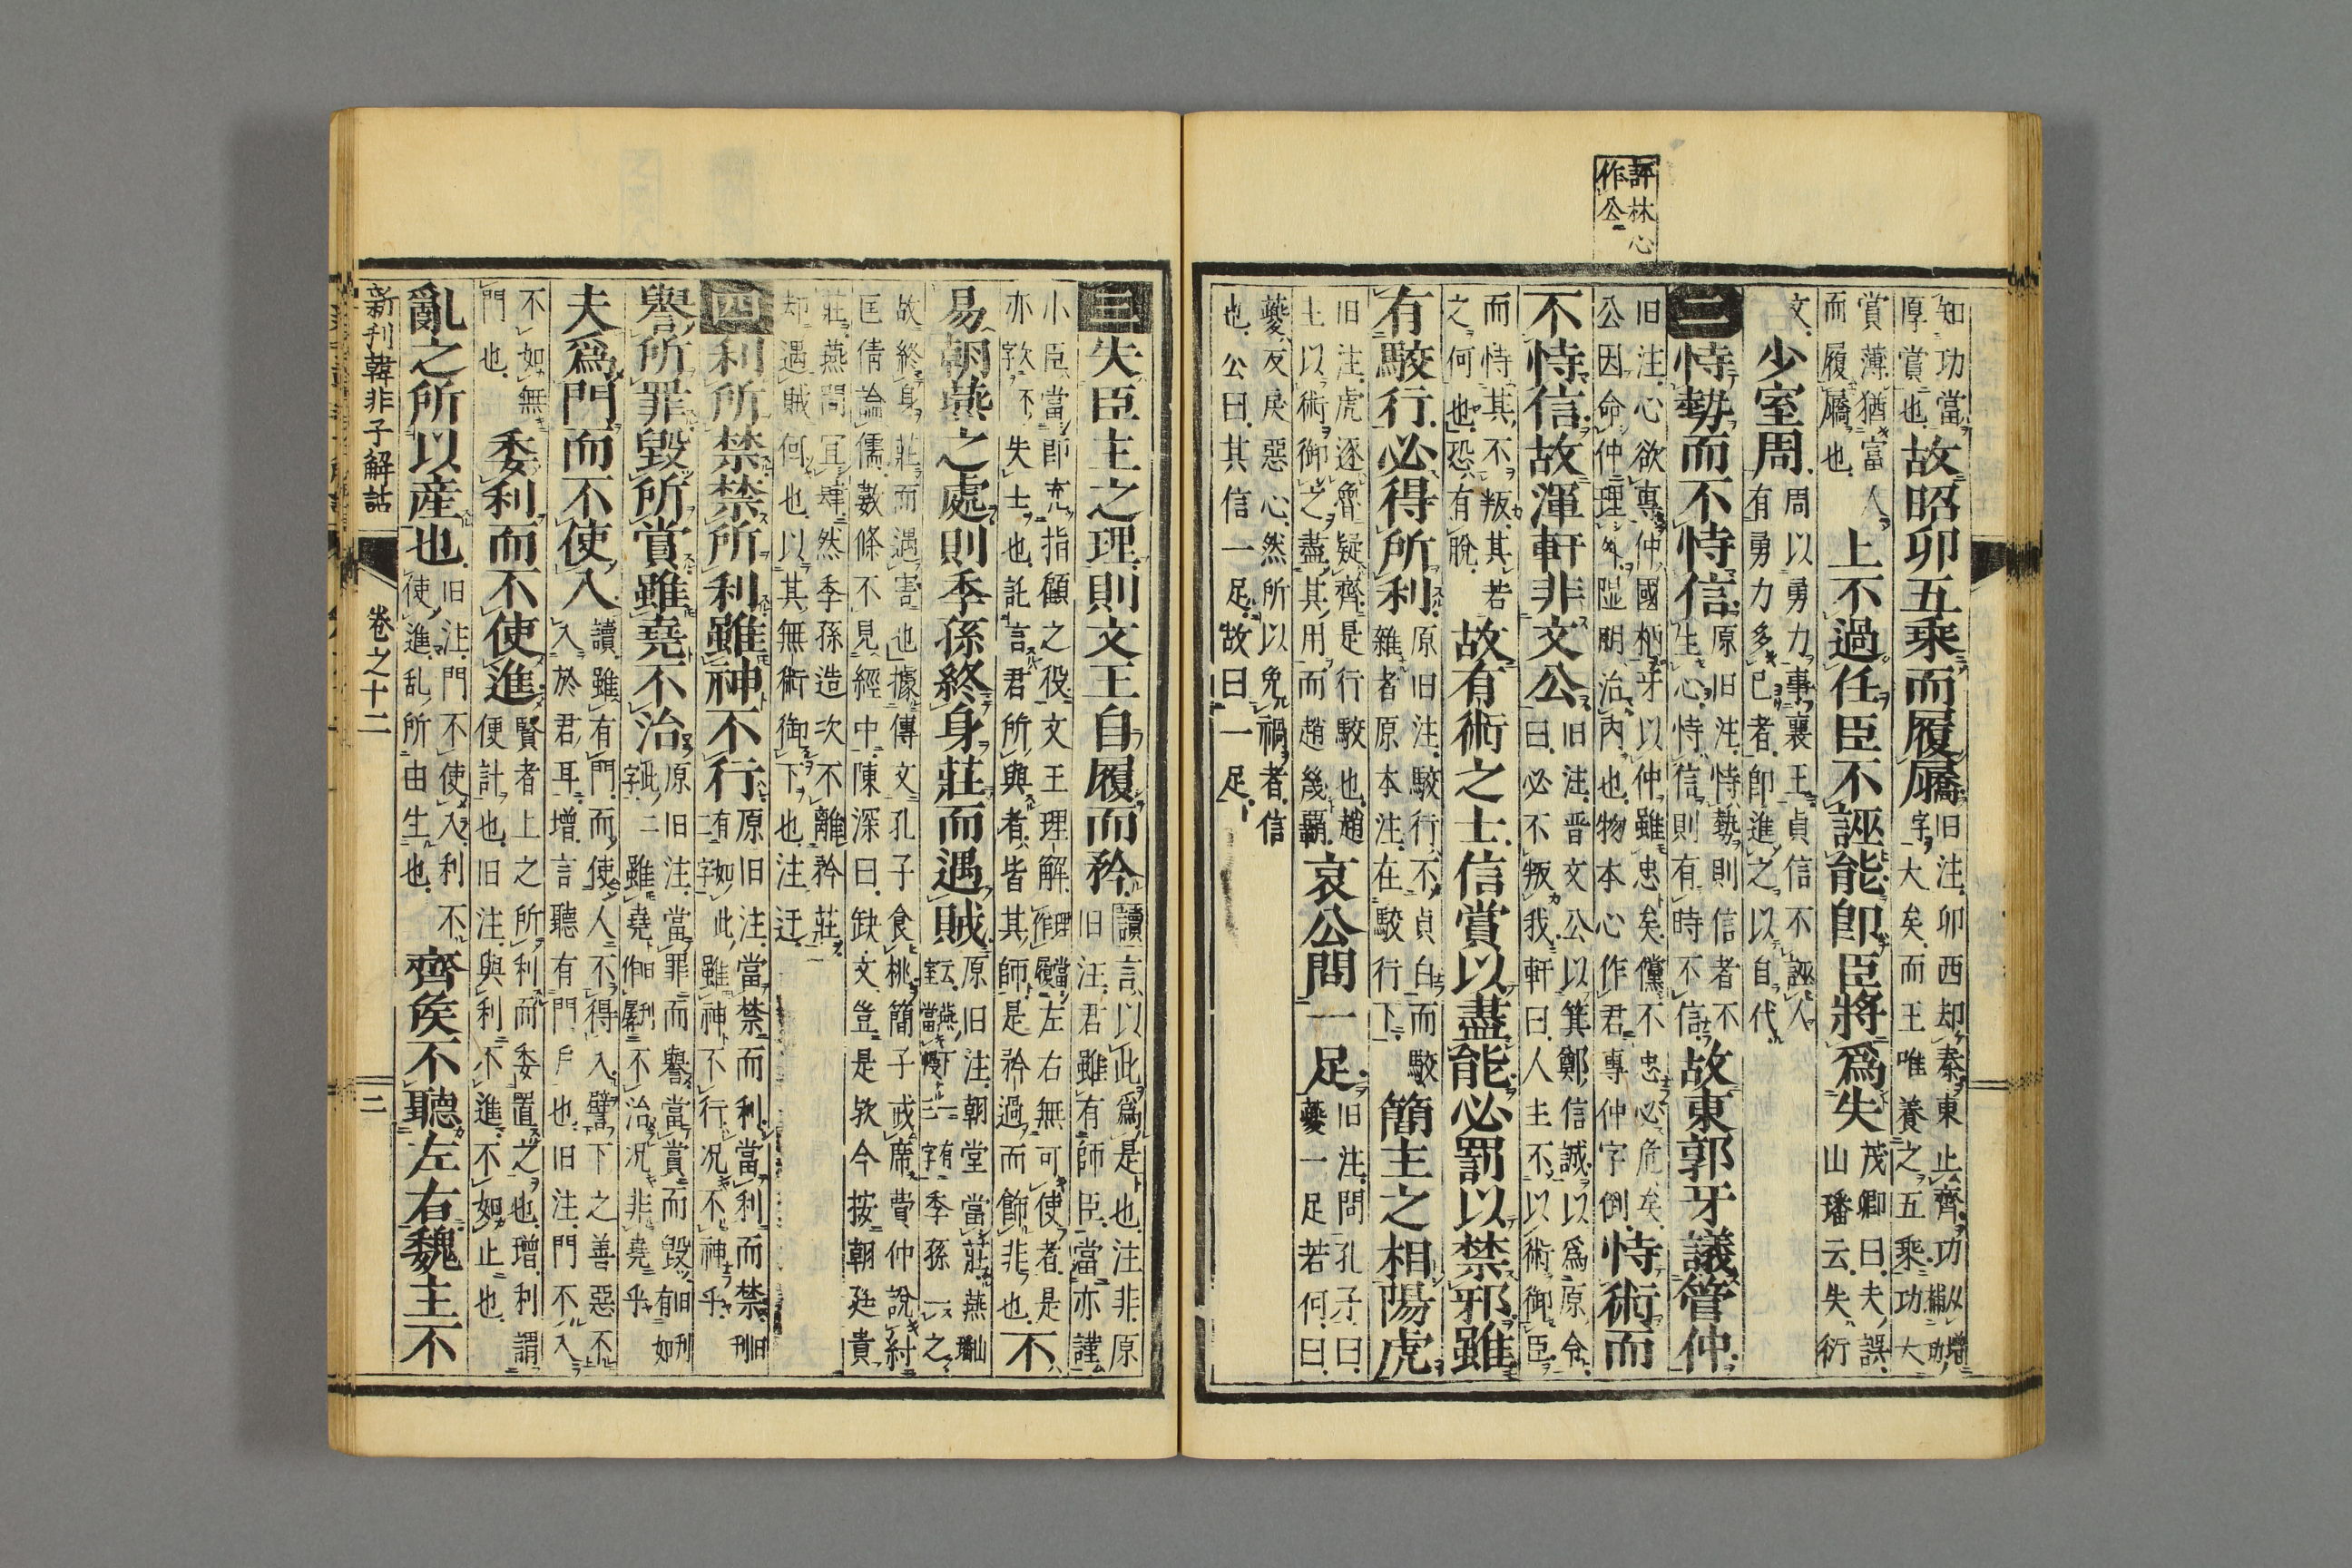 評林心
作公
知功當厚賞也故昭卯五乘而履屩旧注卯西却秦東止齊功字大矣而王唯養之五乘功大
賞薄猶富人而履屩也上不過任臣不誣能即臣將爲失茂卿曰夫誤山璠云失衍
文少室周周以勇力事襄王貞信不誣人有勇力多已者即進之以自代
二恃勢而不恃信原旧注恃勢則信者不生心恃信則有時不信故東郭牙議管仲
旧注心欲專仲國栖牙以仲雖忠矣儻不忠必危矣公因命仲理外隰朋治内也物本心作君專仲字倒恃術而
不恃信故渾軒非文公旧注晋文公以箕鄭信誠以爲原令曰必不叛我軒曰人主不以術御臣
而恃其不叛其若之何也恐有脫故有術之士信賞以盡能必罰以禁邪雖
有駮行必得所利原旧注駮行不貞白而駮雜者原本注在駮行下簡主之相陽虎
旧注虎逐魯疑齊是行駮也趙主以術御之盡其用而趙幾覇哀公問一足旧注問孔子曰夔一足若何曰
夔反戾惡心然所以免禍者信也公曰其信一足故曰一足
三失臣主之理則文王自履而矜讀言以此爲是也注非原旧注君雖有師臣當亦謹
小臣當即充指顧之役文王理解理作履當左右無可使者是亦欤不失士也託言君所與者皆其師是矜過而飾非也不
易朝燕之處則季孫終身莊而遇賊原旧注朝堂當莊燕季孫一之
故終身莊而遇害也據傳文孔子食桃簡子戒席費仲說紂匡倩論儒數條不見經中陳深曰缺文豈是欤今按朝廷貴
莊燕間宜肆然季孫造次不離矜莊却遇賊何也以其無術御下也注迂
四利所禁禁所利雖神不行原旧注當禁而利當利而禁旧刊二字有如此雖神不行况不神乎
譽所罪毀所賞雖堯不治原旧注當罪而譽當賞而毀旧刊有如此二字雖堯旧刊作屠不治况非堯乎
夫爲門而不使入讀雖有門而使人不得入譬下之善惡不入於君耳増言聽有門戶也旧注門不入
不如無門也委利而不使進賢者上之所利而委置之也増利謂便計也旧注與利不進不如止也
亂之所以産也旧注門不使入利不使進乱所由生也齊矦不聽左右魏主不
新刊韓非子解詁 卷之十二 二